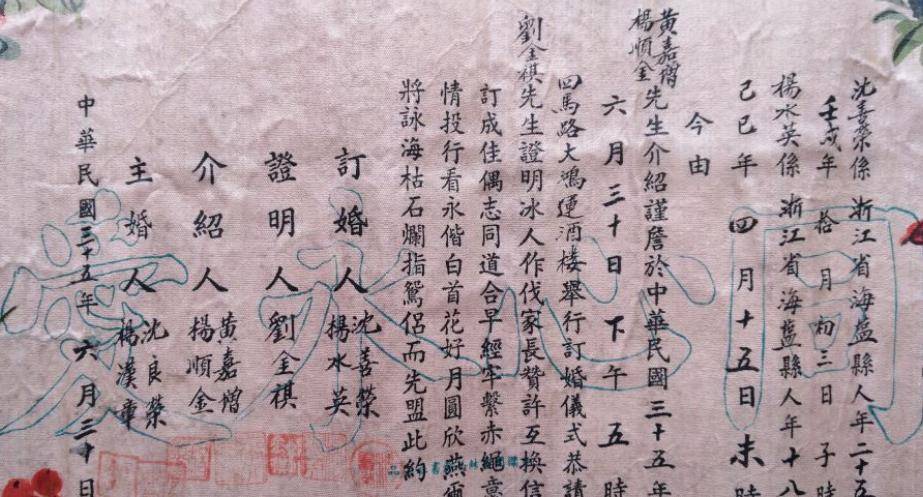 沈善榮係浙江省海鹽縣人年二十五
壬戌年拾月初三日子時
楊水英係浙江省海鹽縣人年十八
己巳年四月十五日未時
今由
黃嘉熷
楊順金先生介紹謹詹於中華民國三十五年
六月三十日下午五時
四馬路大鴻運酒楼舉行訂婚儀式恭請
劉金棋先生證明冰人作伐家長贊許互換信
訂成佳偶志同道合早經牢繫赤繩意
情投行看永偕白首花好月圓欣燕爾
將詠海枯石爛指鴛侶而先盟此約
訂婚人沈善榮
楊水英
證明人劉金棋
介紹人黃嘉熷
楊順金
主婚人沈良榮
楊漢章
中華民國三十五年六月三十日
同心永愛